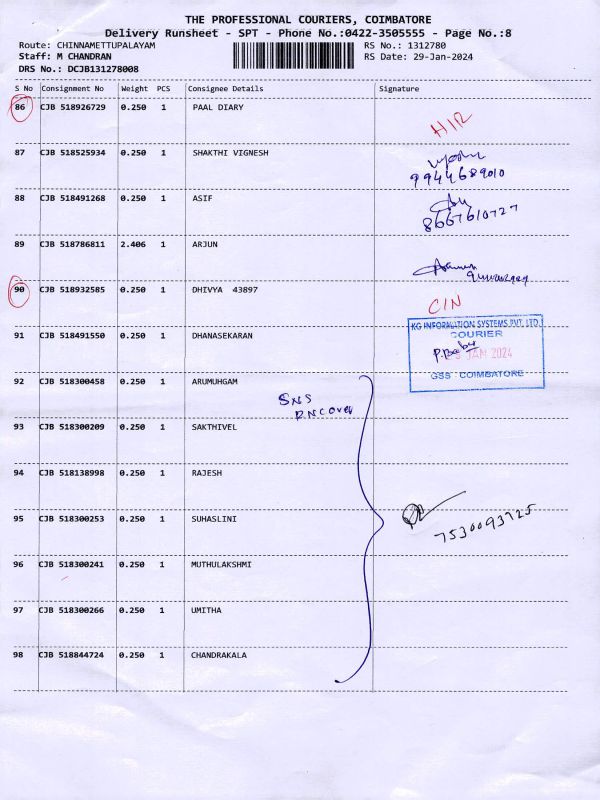 THE PROFESSIONAL COURIERS, COIMBATORE
Delivery Runsheet - SPT - Phone No.:0422-3505555 - Page No.:8
Route: CHINNAMETTUPALAYAM RS No.: 1312780
Staff: M CHANDRAN RS Date: 29-Jan-2024
DRS No.: DCJB131278008
S No Consignment No Weight PCS Consignee Details Signature
86 CJB 518926729 0.250 1 PAAL DIARY
H/R
87 CJB 518525934 0.250 1 SHAKTHI VIGNESH
9944689010
88 CJB 518491268 0.250 1 ASIF
8667610727
89 CJB 518786811 2.406 1 ARJUN
90 CJB 518932585 0.250 1 DHIVYA 43897
C/N
KG INFORMATION SYSTEMS PVT. LTD.
COURIER
91 CJB 518491550 0.250 1 DHANASEKARAN
P. Babu
JAN 2024
GSS COIMBATORE
92 CJB 518300458 0.250 1 ARUMUHGAM
SNS
93 CJB 518300209 0.250 1 SAKTHIVEL
94 CJB 518138998 0.250 1 RAJESH
95 CJB 518300253 0.250 1 SUHASLINI
7530093725
96 CJB 518300241 0.250 1 MUTHULAKSHMI
97 CJB 518300266 0.250 1 UMITHA
98 CJB 518844724 0.250 1 CHANDRAKALA